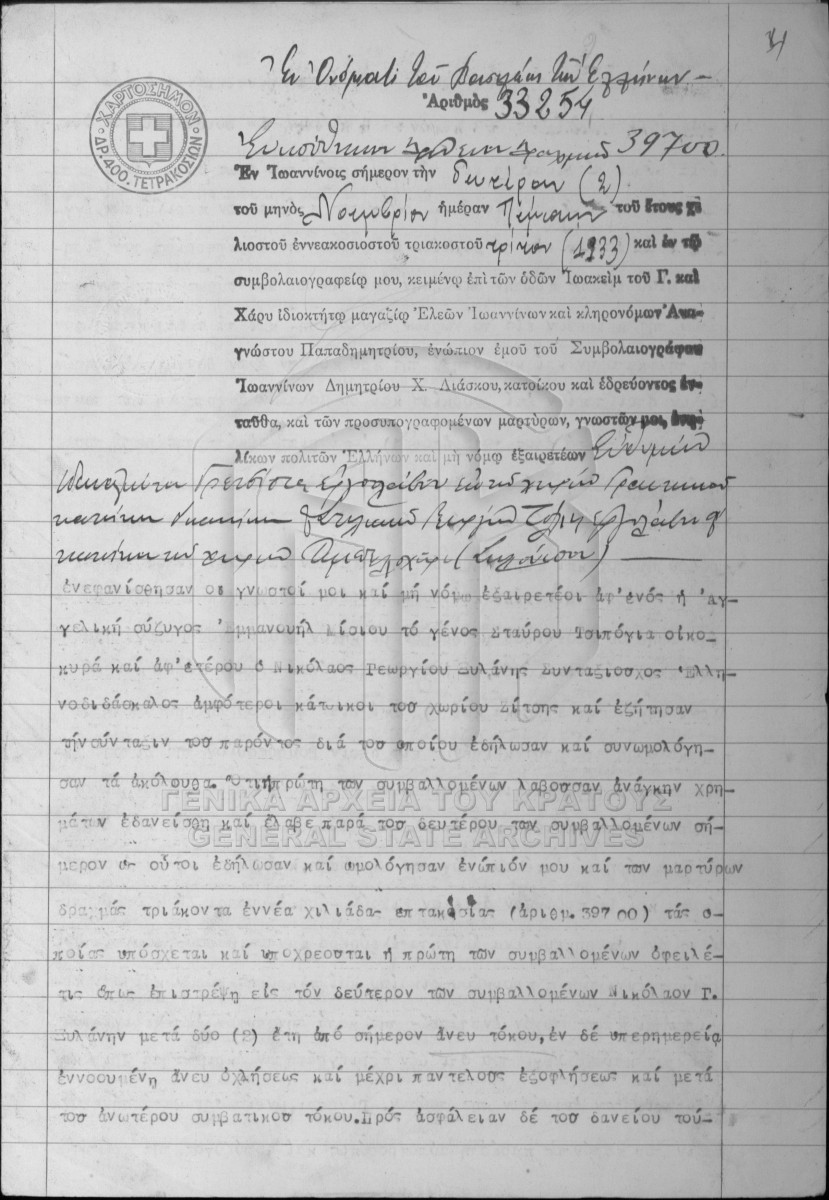 Ἐν Ὀνόματι τοῦ Βασιλέως τῶν Ἑλλήνων
ΧΑΡΤΟΣΗΜΟΝ
ΔΡ. 400. ΤΕΤΡΑΚΟΣΙΩΝ
Ἀριθμὸς 33254
39700
Ἐν Ἰωαννίνοις σήμερον τὴν δευτέραν (2)
τοῦ μηνὸς Νοεμβρίου ἡμέραν Πέμπτην τοῦ ἔτους χι
λιοστοῦ ἐννεακοσιοστοῦ τριακοστοῦ τρίτου (1933) καὶ ἐν τῷ
συμβολαιογραφείῳ μου, κειμένῳ ἐπὶ τῶν ὁδῶν Ἰωακεὶμ τοῦ Γ. καὶ
Χάρυ ἰδιοκτήτῳ μαγαζίῳ Ἐλεῶν Ἰωαννίνων καὶ κληρονόμων Ἀνα-
γνώστου Παπαδημητρίου, ἐνώπιον ἐμοῦ τοῦ Συμβολαιογράφου
Ἰωαννίνων Δημητρίου Χ. Λιάσκου, κατοίκου καὶ ἑδρεύοντος ἐν-
ταῦθα, καὶ τῶν προσυπογραφομένων μαρτύρων, γνωστῶν μοι,
λίκων πολιτῶν Ἑλλήνων καὶ μὴ νόμῳ ἐξαιρετέων
ἐνεφανίσθησαν οι γνωστοί μοι καί μή νόμω ἐξαιρετέοι ἀφ'ἑνός ἡ Ἀγ-
γελική σύζυγος Ἐμμανουήλ Σίσιου τό γένος Σταύρου Τσιπόγια οἰκο-
κυρά καί ἀφ'ετέρου ὁ Νικόλαος Γεωργίου Ξυλάνης Συνταξιοσχος Ἑλλη-
νοδιδάσκαλος ἀμφότεροι κάτοικοι τοσ χωρίου Ζίτσης καί ἐζήτησαν
τήνσύνταξιν τοσ παρόντος διά τοσ οποίου ἐδήλωσαν καί συνωμολόγη-
σαν τά ἀκόλουθα. Ὅτιἡπρώτη τῶν συμβαλλομένων λαβοσσαν ἀνάγκην χρη-
ΓΕΝΙΚΑ ΑΡΧΕΙΑ ΤΟΥ ΚΡΑΤΟΥΣ
μάτων ἐδανείσθη καί ἔλαβε παρά τοσ δευτέρου τῶν συμβαλλομένων σή-
GENERAL STATE ARCHIVES
μερον ως οὗτοι ἐδήλωσαν καί ωμολόγησαν ἐνώπιόν μου καί τῶν μαρτύρων
δραχμάς τριάκοντα ἐννέα χιλιάδας επτακοσίας (ἀριθμ. 39700) τάς ο-
ποίας υπόσχεται καί υποχρεοσται ἡ πρώτη τῶν συμβαλλομένων ὀφειλέ-
τις ὅπως ἐπιστρέψη εἰς τόν δεύτερον τῶν συμβαλλομένων Νικόλαον Γ.
Ξυλάνην μετά δύο (2) ἔτη ἀπό σήμερον ἄνευ τόκου, ἐν δέ υπερημερεία
ἐννοουμένη ἄνευ ὀχλήσεως καί μέχρι παντελοσς ἐξοφλήσεως καί μετά
τοσ ἀνωτέρου συμβατικοσ τόκου. Πρός ἀσφάλειαν δέ τοσ δανείου τού-